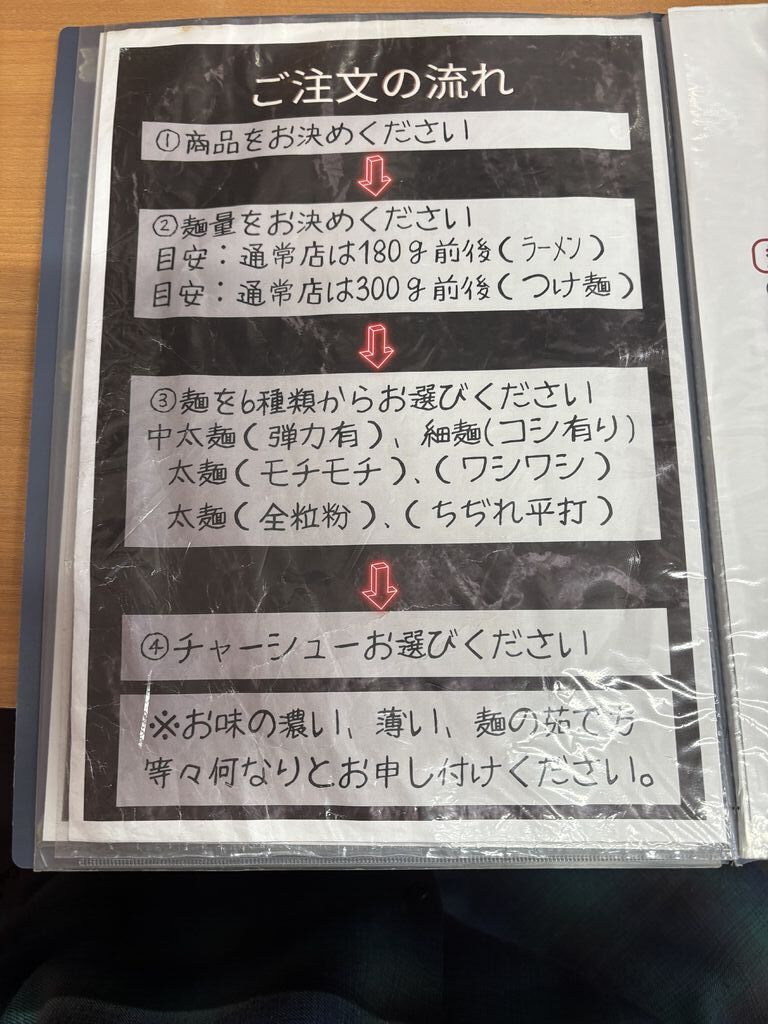 ご注文の流れ
①商品をお決めください
②麺量をお決めください
目安：通常店は180g前後(ラーメン)
目安：通常店は300g前後(つけ麺)
③麺を6種類からお選びください
中太麺(弾力有)、細麺(コシ有り)
太麺(モチモチ)、(ワシワシ)
太麺(全粒粉)、(ちぢれ平打)
④チャーシューお選びください
※お味の濃い、薄い、麺の茹で方
等々何なりとお申し付けください。